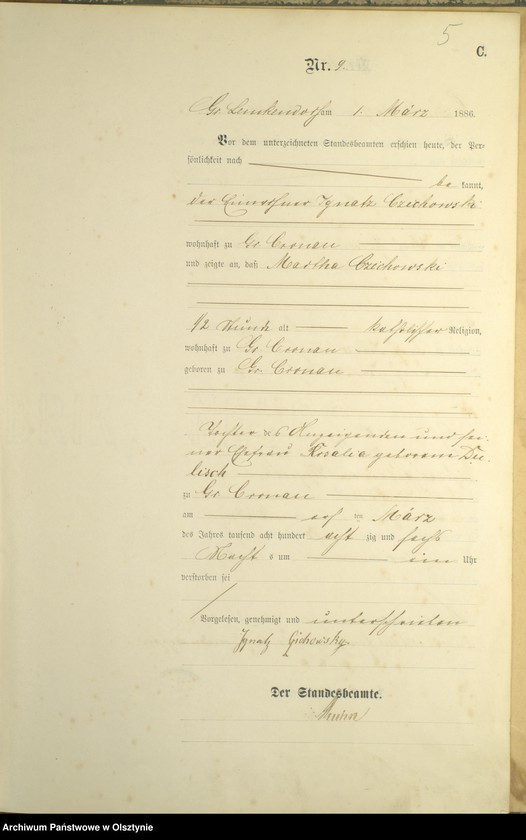 5
C.
Nr. 9.
Gr. Lemkendorf am 1. März 1886.
Vor dem unterzeichneten Standesbeamten erschien heute, der Per-
sönlichkeit nach
be kannt,
der Einwohner Ignatz Czichowski
wohnhaft zu Gr. Cronau
und zeigte an, daß Martha Czichowski
1/2 Stunde alt katholischer Religion,
wohnhaft zu Gr. Cronau
geboren zu Gr. Cronau
Tochter des Anzeigenden und sei-
ner Ehefrau Rosalia geborene
lisch
zu Gr. Cronau
am ten März
des Jahres tausend acht hundert acht zig und sechs
Nacht s um Uhr
verstorben sei
Vorgelesen, genehmigt und unterschrieben
Ignatz Gichowsky
Der Standesbeamte.
Archiwum Państwowe w Olsztynie